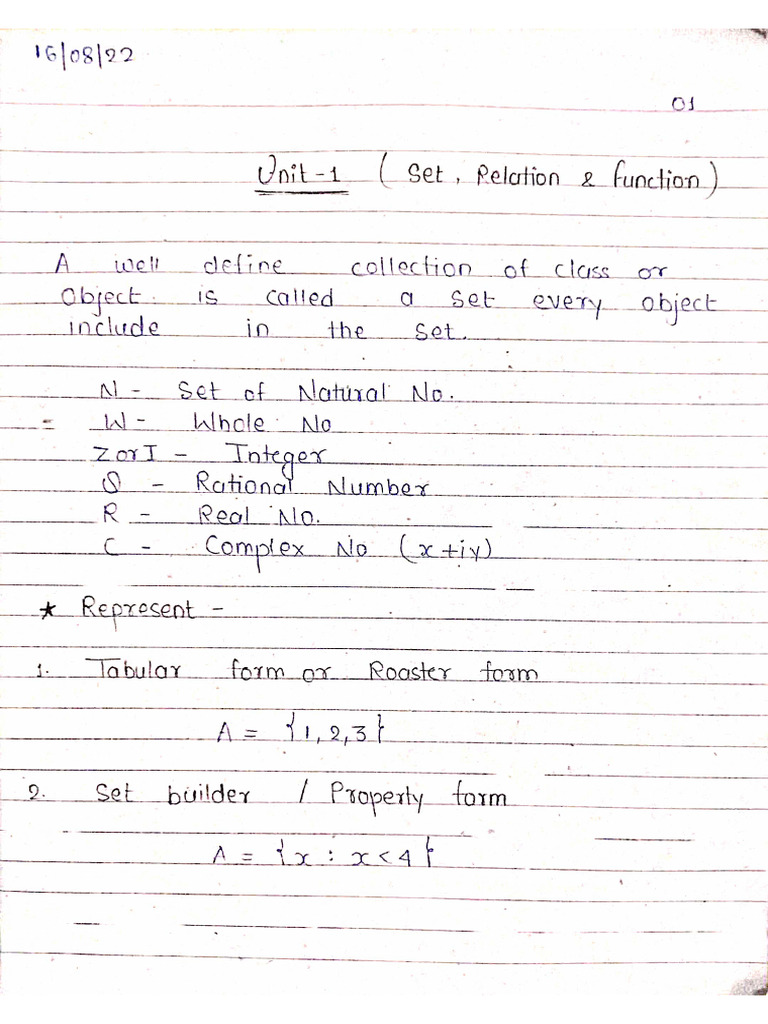 16/08/22
01
Unit-1 ( Set, Relation & function)
A well define collection of class or
Object is called a set every object
include in the set.
N - Set of Natural No.
= W - Whole No
Z or I - Integer
Q - Rational Number
R - Real No.
C - Complex No (x+iy)
* Represent -
1. Tabular form or Roaster form
A = {1,2,3}
2. Set builder / Property form
A = {x : x < 4}